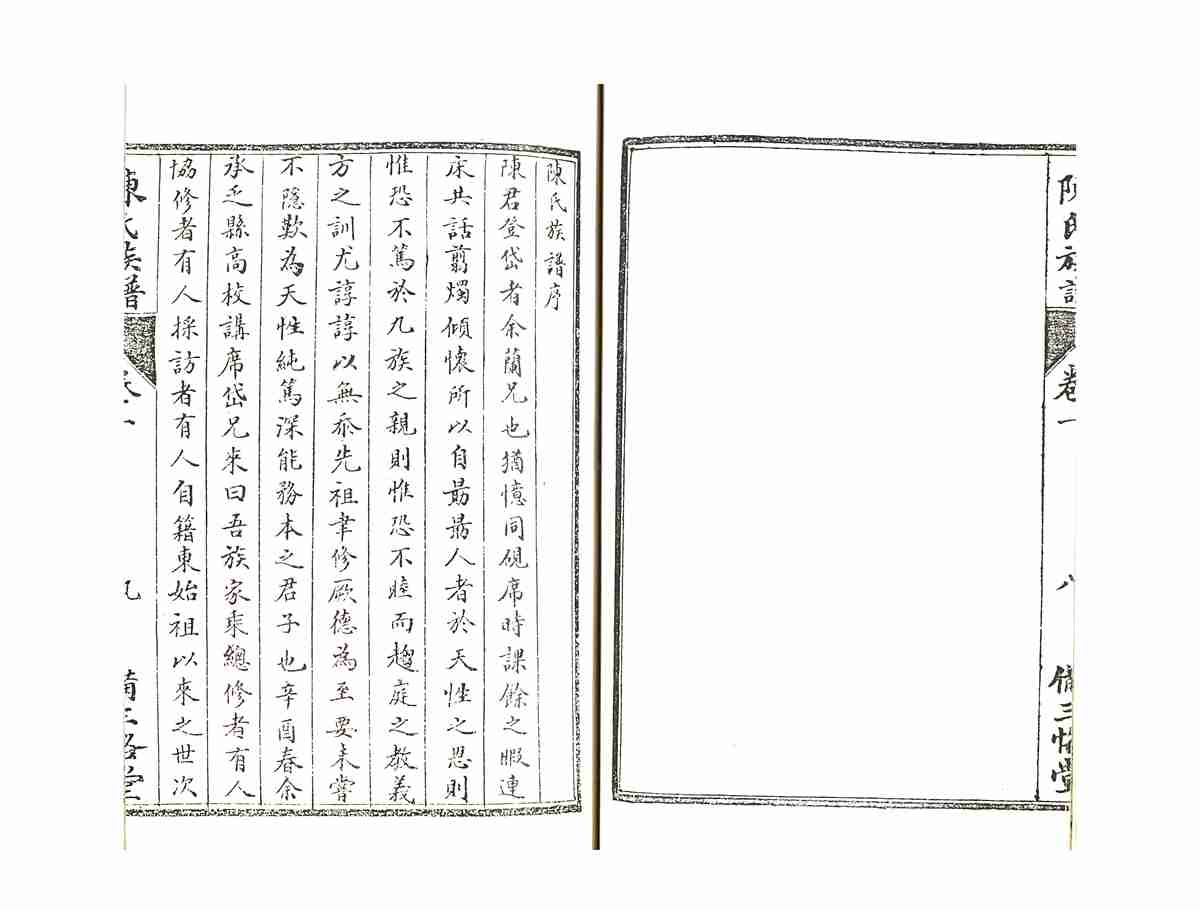 陳氏族譜
卷一
八
備三恪堂
陳氏族譜序
陳君登岱者余蘭兄也猶憶同硯席時課餘之暇連
床共話翦燭傾懷所以自勗勗人者於天性之恩則
惟恐不篤於九族之親則惟恐不睦而趨庭之教義
方之訓尤諄諄以無忝先祖聿修厥德為至要未嘗
不隱歎為天性純篤深能務本之君子也辛酉春余
承乏縣高校講席岱兄來曰吾族家乘總修者有人
協修者有人採訪者有人自籍東始祖以來之世次
陳氏族譜
卷一
九
備三恪堂